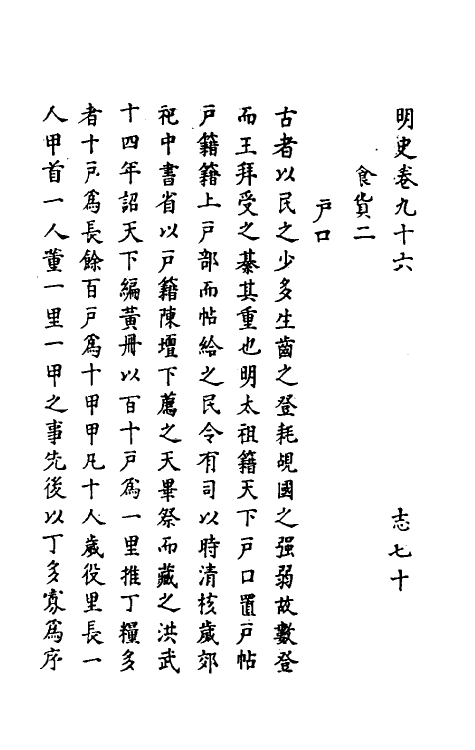 明史卷九十六 志七十
食貨二
戸口
古者以民之少多生齒之登耗覘國之强弱故數登
而王拜受之綦其重也明太祖籍天下戸口置戸帖
戸籍籍上戸部而帖給之民令有司以時清核歲郊
祀中書省以戸籍陳壇下薦之天畢祭而藏之洪武
十四年詔天下編黃冊以百十戸爲一里推丁糧多
者十戸爲長餘百戸爲十甲甲凡十人歲役里長一
人甲首一人董一里一甲之事先後以丁多寡爲序